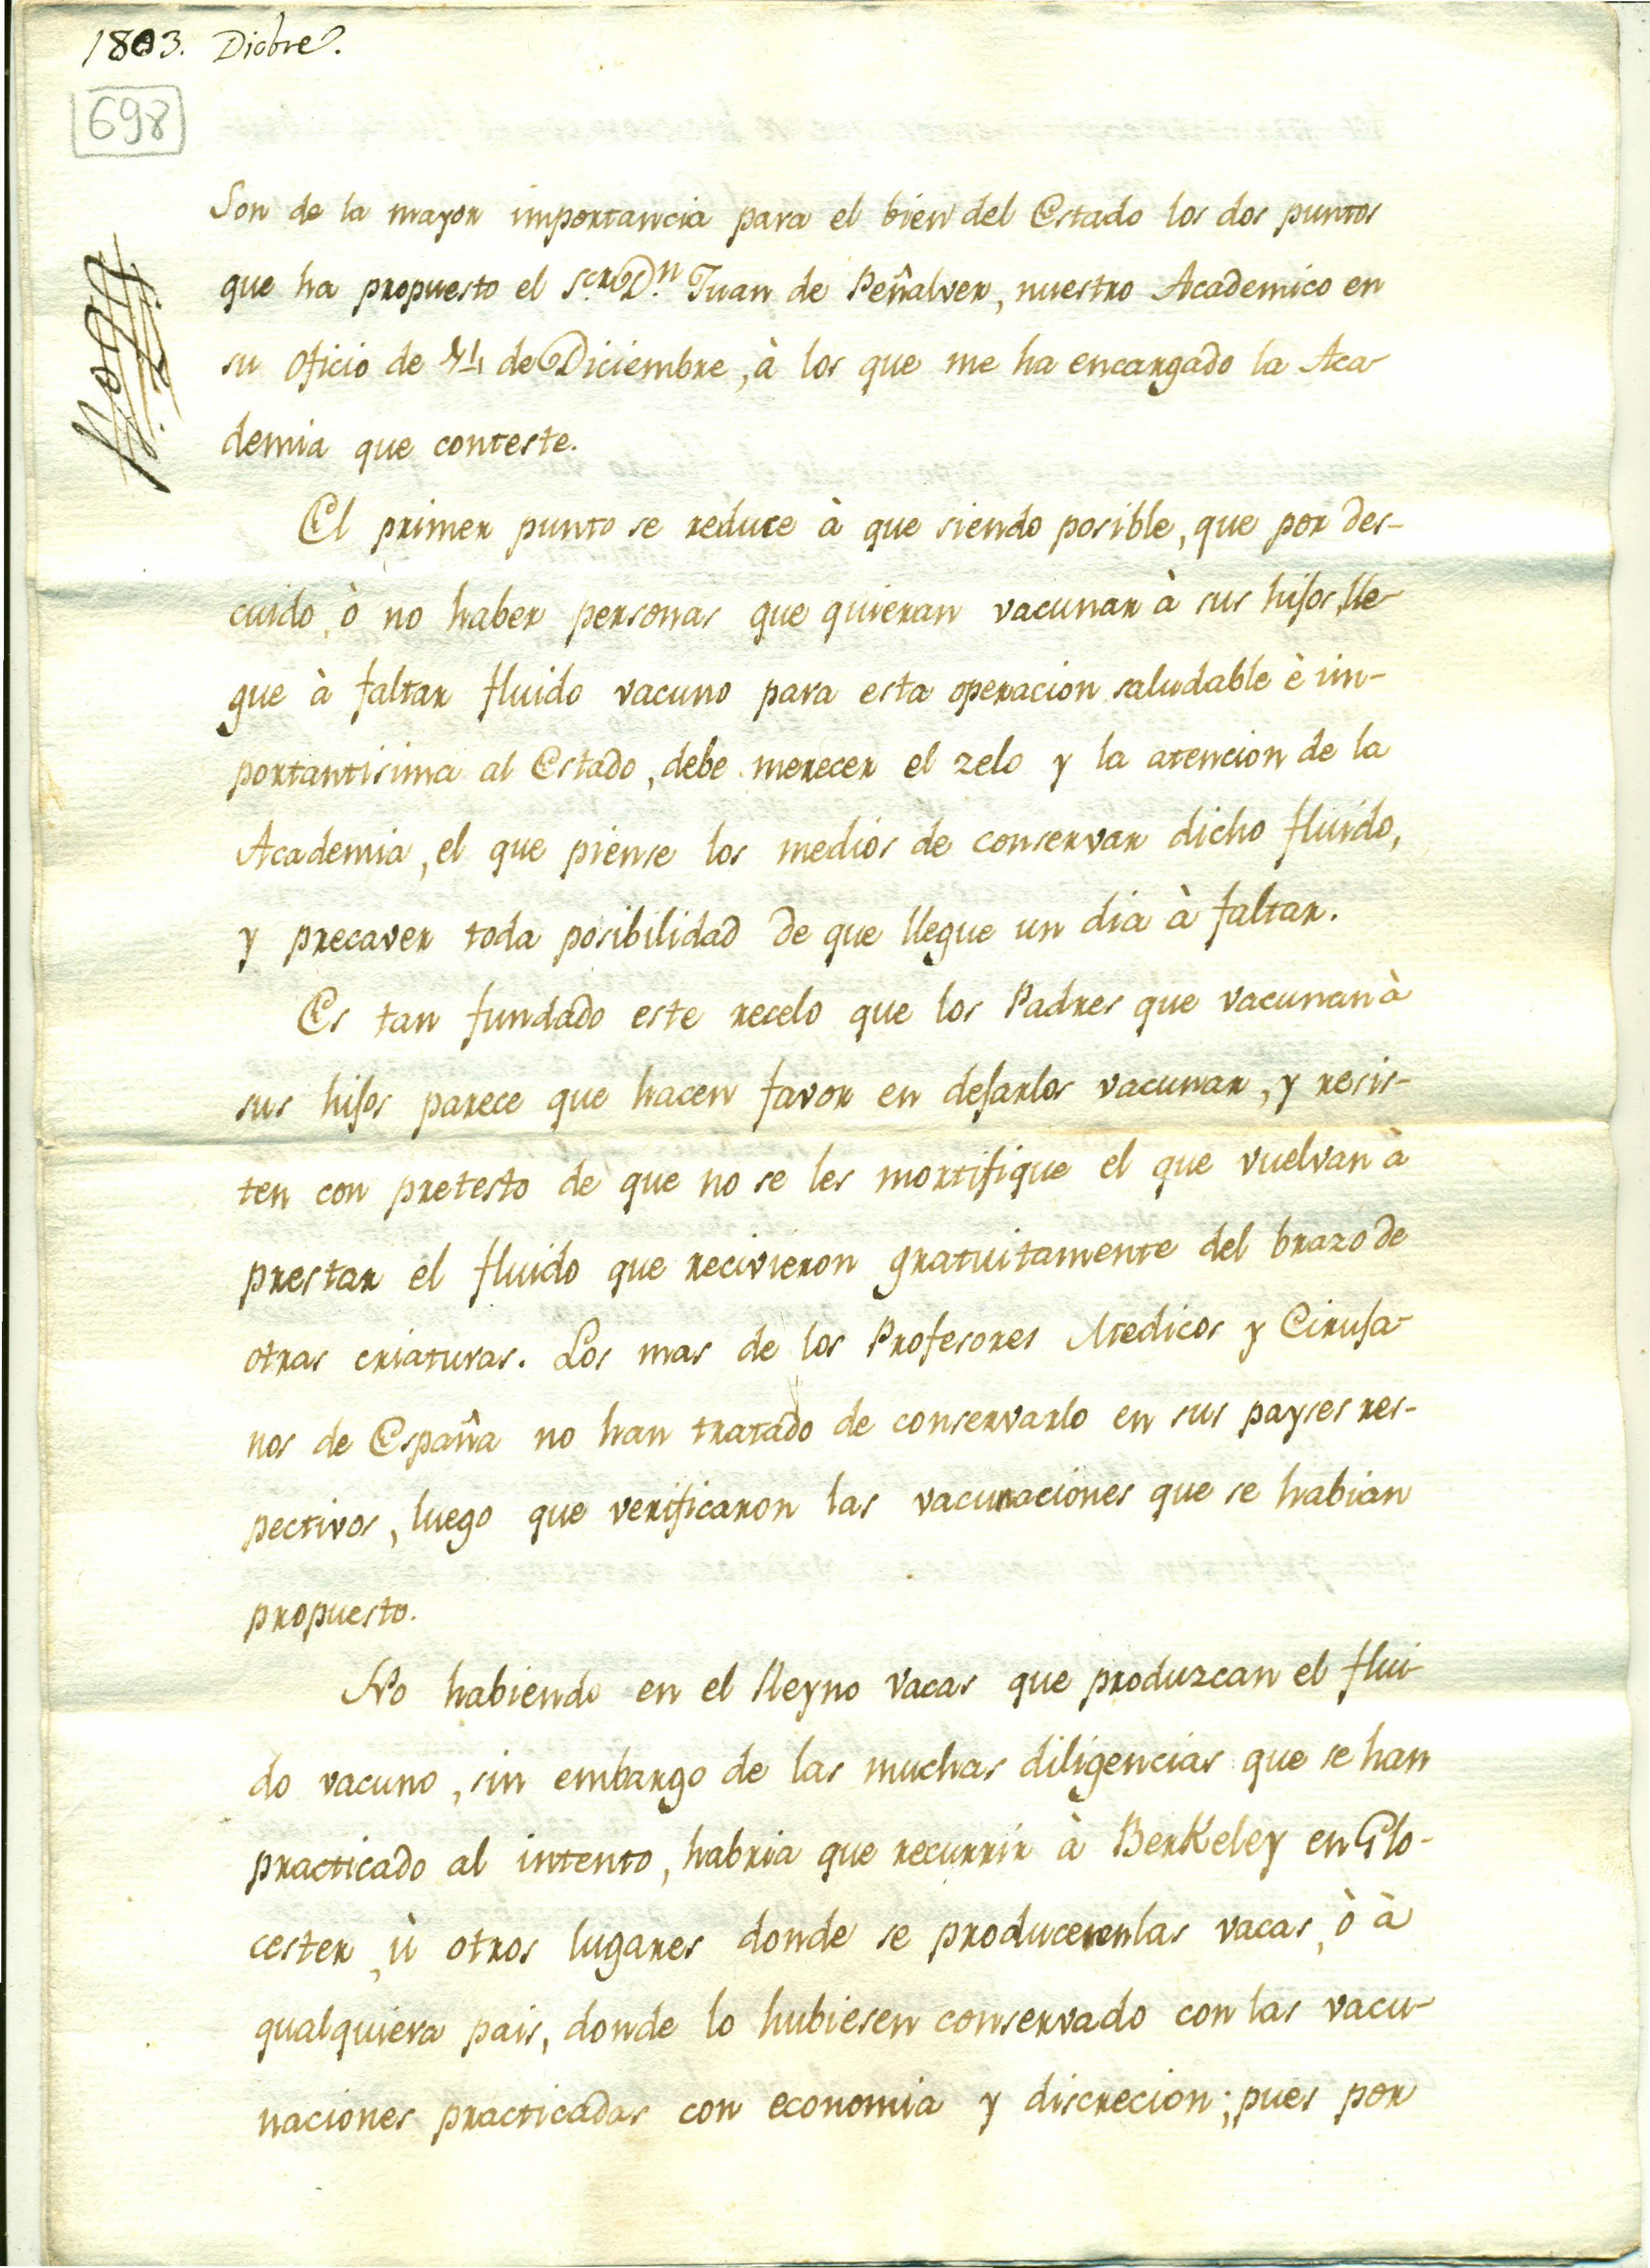 1803. Dicbre.
698
Son de la mayor importancia para el bien del Estado los dos puntos
que ha propuesto el Sor. Dn. Juan de Peñalver, nuestro Academico en
su oficio de de Diciembre, à los que me ha encargado la Aca-
demia que conteste.
El primer punto se reduce à que siendo posible, que por des-
cuido, ò no haber personas que quieran vacunar à sus hijos, lle-
gue à faltar fluido vacuno para esta operacion saludable è im-
portantisima al Estado, debe merecer el zelo y la atencion de la
Academia, el que piense los medios de conservar dicho fluido,
y precaver toda posibilidad de que llegue un dia à faltar.
Es tan fundado este recelo que los Padres que vacunan à
sus hijos parece que hacen favor en dejarlos vacunar, y resis-
ten con pretesto de que no se les mortifique el que vuelvan à
prestar el fluido que recivieron gratuitamente del brazo de
otras criaturas. Los mas de los Profesores Medicos y Ciruja-
nos de España no han tratado de conservarlo en sus payses res-
pectivos, luego que verificaron las vacunaciones que se habian
propuesto.
No habiendo en el Reyno vacas que produzcan el flui-
do vacuno, sin embargo de las muchas diligencias que se han
practicado al intento, habria que recurrir à Berkeley en Glo-
cester, ù otros lugares donde se produce en las vacas, ò à
qualquiera pais, donde lo hubiesen conservado con las vacu-
naciones practicadas con economia y discrecion; pues por